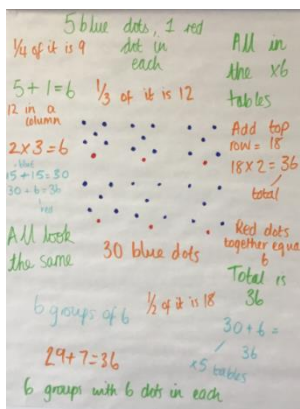 5 blue dots, 1 red
dot in
each
¼ of it is 9
All in
the x6
tables
5+1=6
⅓ of it is 12
12 in a
column
2x3=6
blue
15+15=30
30+6=36
red
Add top
row = 18
18x2=36
total
All look
the same
30 blue dots
Red dots
together equa
6
Total is
36
6 groups of 6
½ of it is 18
30+6=
36
x5 tables
29+7=36
6 groups with 6 dots in each